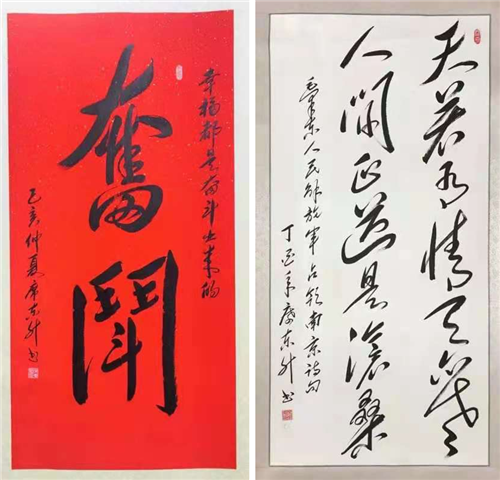 奮鬦
幸福都是奋斗出来的
己亥仲夏 东升书
天若有情天亦老
人间正道是滄桑
毛泽东人民解放军占领南京诗句
丁酉 东升书